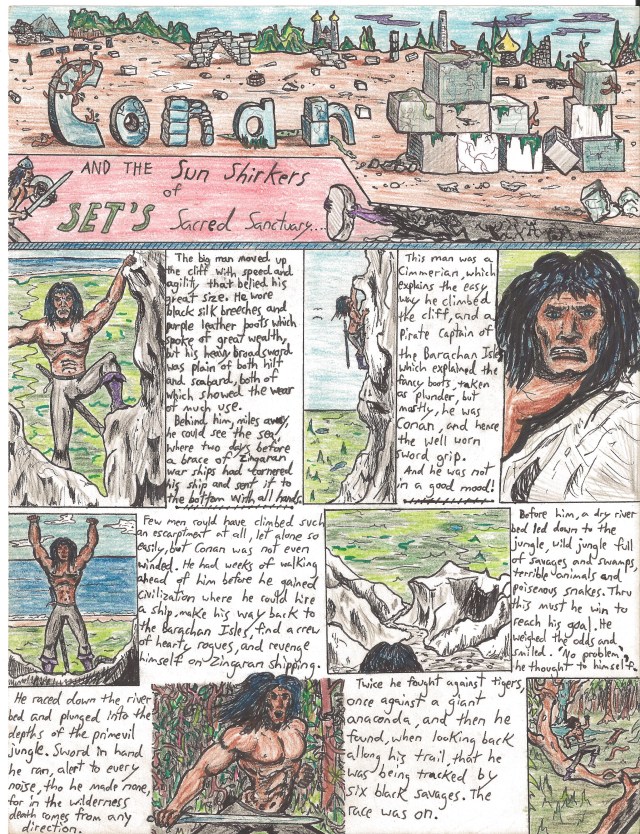 Conan
AND THE Sun Shirkers
of
SET'S Sacred Sanctuary...
The big man moved up
the cliff with speed and
agility that belied his
great size. He wore
black silk breeches and
purple leather boots which
spoke of great wealth,
but his heavy broadsword
was plain of both hilt
and scabard, both of
which showed the wear
of much use.
Behind him, miles away,
he could see the sea,
where two days before
a brace of Zingaran
war ships had cornered
his ship and sent it to
the bottom with all hands.
This man was a
Cimmerian, which
explains the easy
way he climbed
the cliff, and a
Pirate Captain of
the Barachan Isles
which explained the
fancy boots, taken
as plunder, but
mostly, he was
Conan, and hence
the well worn
sword grip.
And he was not
in a good mood!
Few men could have climbed such
an escarptment at all, let alone so
easily, but Conan was not even
winded. He had weeks of walking
ahead of him before he gained
civilization where he could hire
a ship, make his way back to
the Barachan Isles, find a crew
of hearty rogues, and revenge
himself on Zingaran shipping.
Before him, a dry river
bed led down to the
jungle, wild jungle full
of savages and swamps,
terrible animals and
poisenous snakes. Thru
this must he win to
reach his goal. He
weighed the odds and
smiled. 'No problem,'
he thought to himself.
He raced down the river
bed and plunged into the
depths of the primevil
jungle. Sword in hand
he ran, alert to every
noise, tho he made none,
for in the wilderness
death comes from any
direction.
Twice he fought against tigers,
once against a giant
anaconda, and then he
found, when looking back
allong his trail, that he
was being tracked by
six black savages. The
race was on.